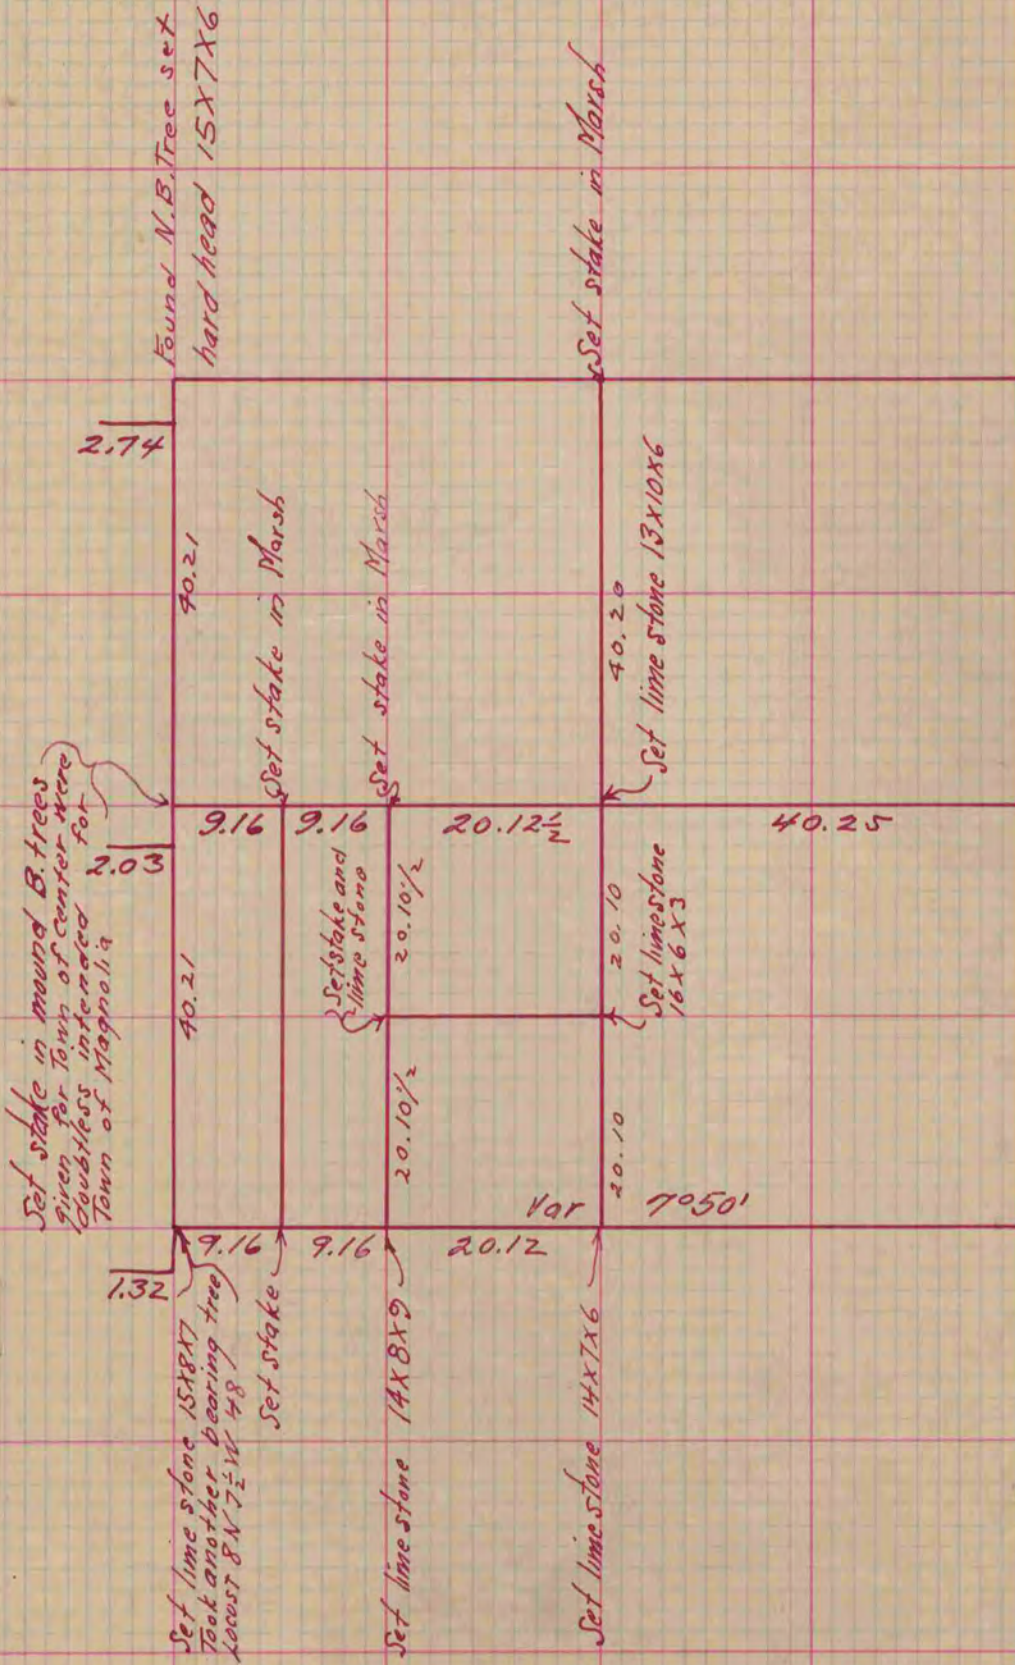 Found N.B. Tree set
hard head 15X7X6
Set stake in Marsh
2.74
40.21
Set stake in Marsh
Set stake in Marsh
40.20
Set lime stone 13X10X6
Set stake in mound B. trees
given for Town of center were
doubtless intended for
Town of Magnolia
2.03
9.16
9.16
20.12½
40.25
40.21
Set stake and
lime stone
20.10½
20.10
Set limestone
16X6X3
20.10½
20.10
Var 7°50'
1.32
9.16
9.16
20.12
Set lime stone 15X8X7
Took another bearing tree
Locust 8 N 7½ W 48
Set stake
Set lime stone 14X8X9
Set lime stone 14X7X6